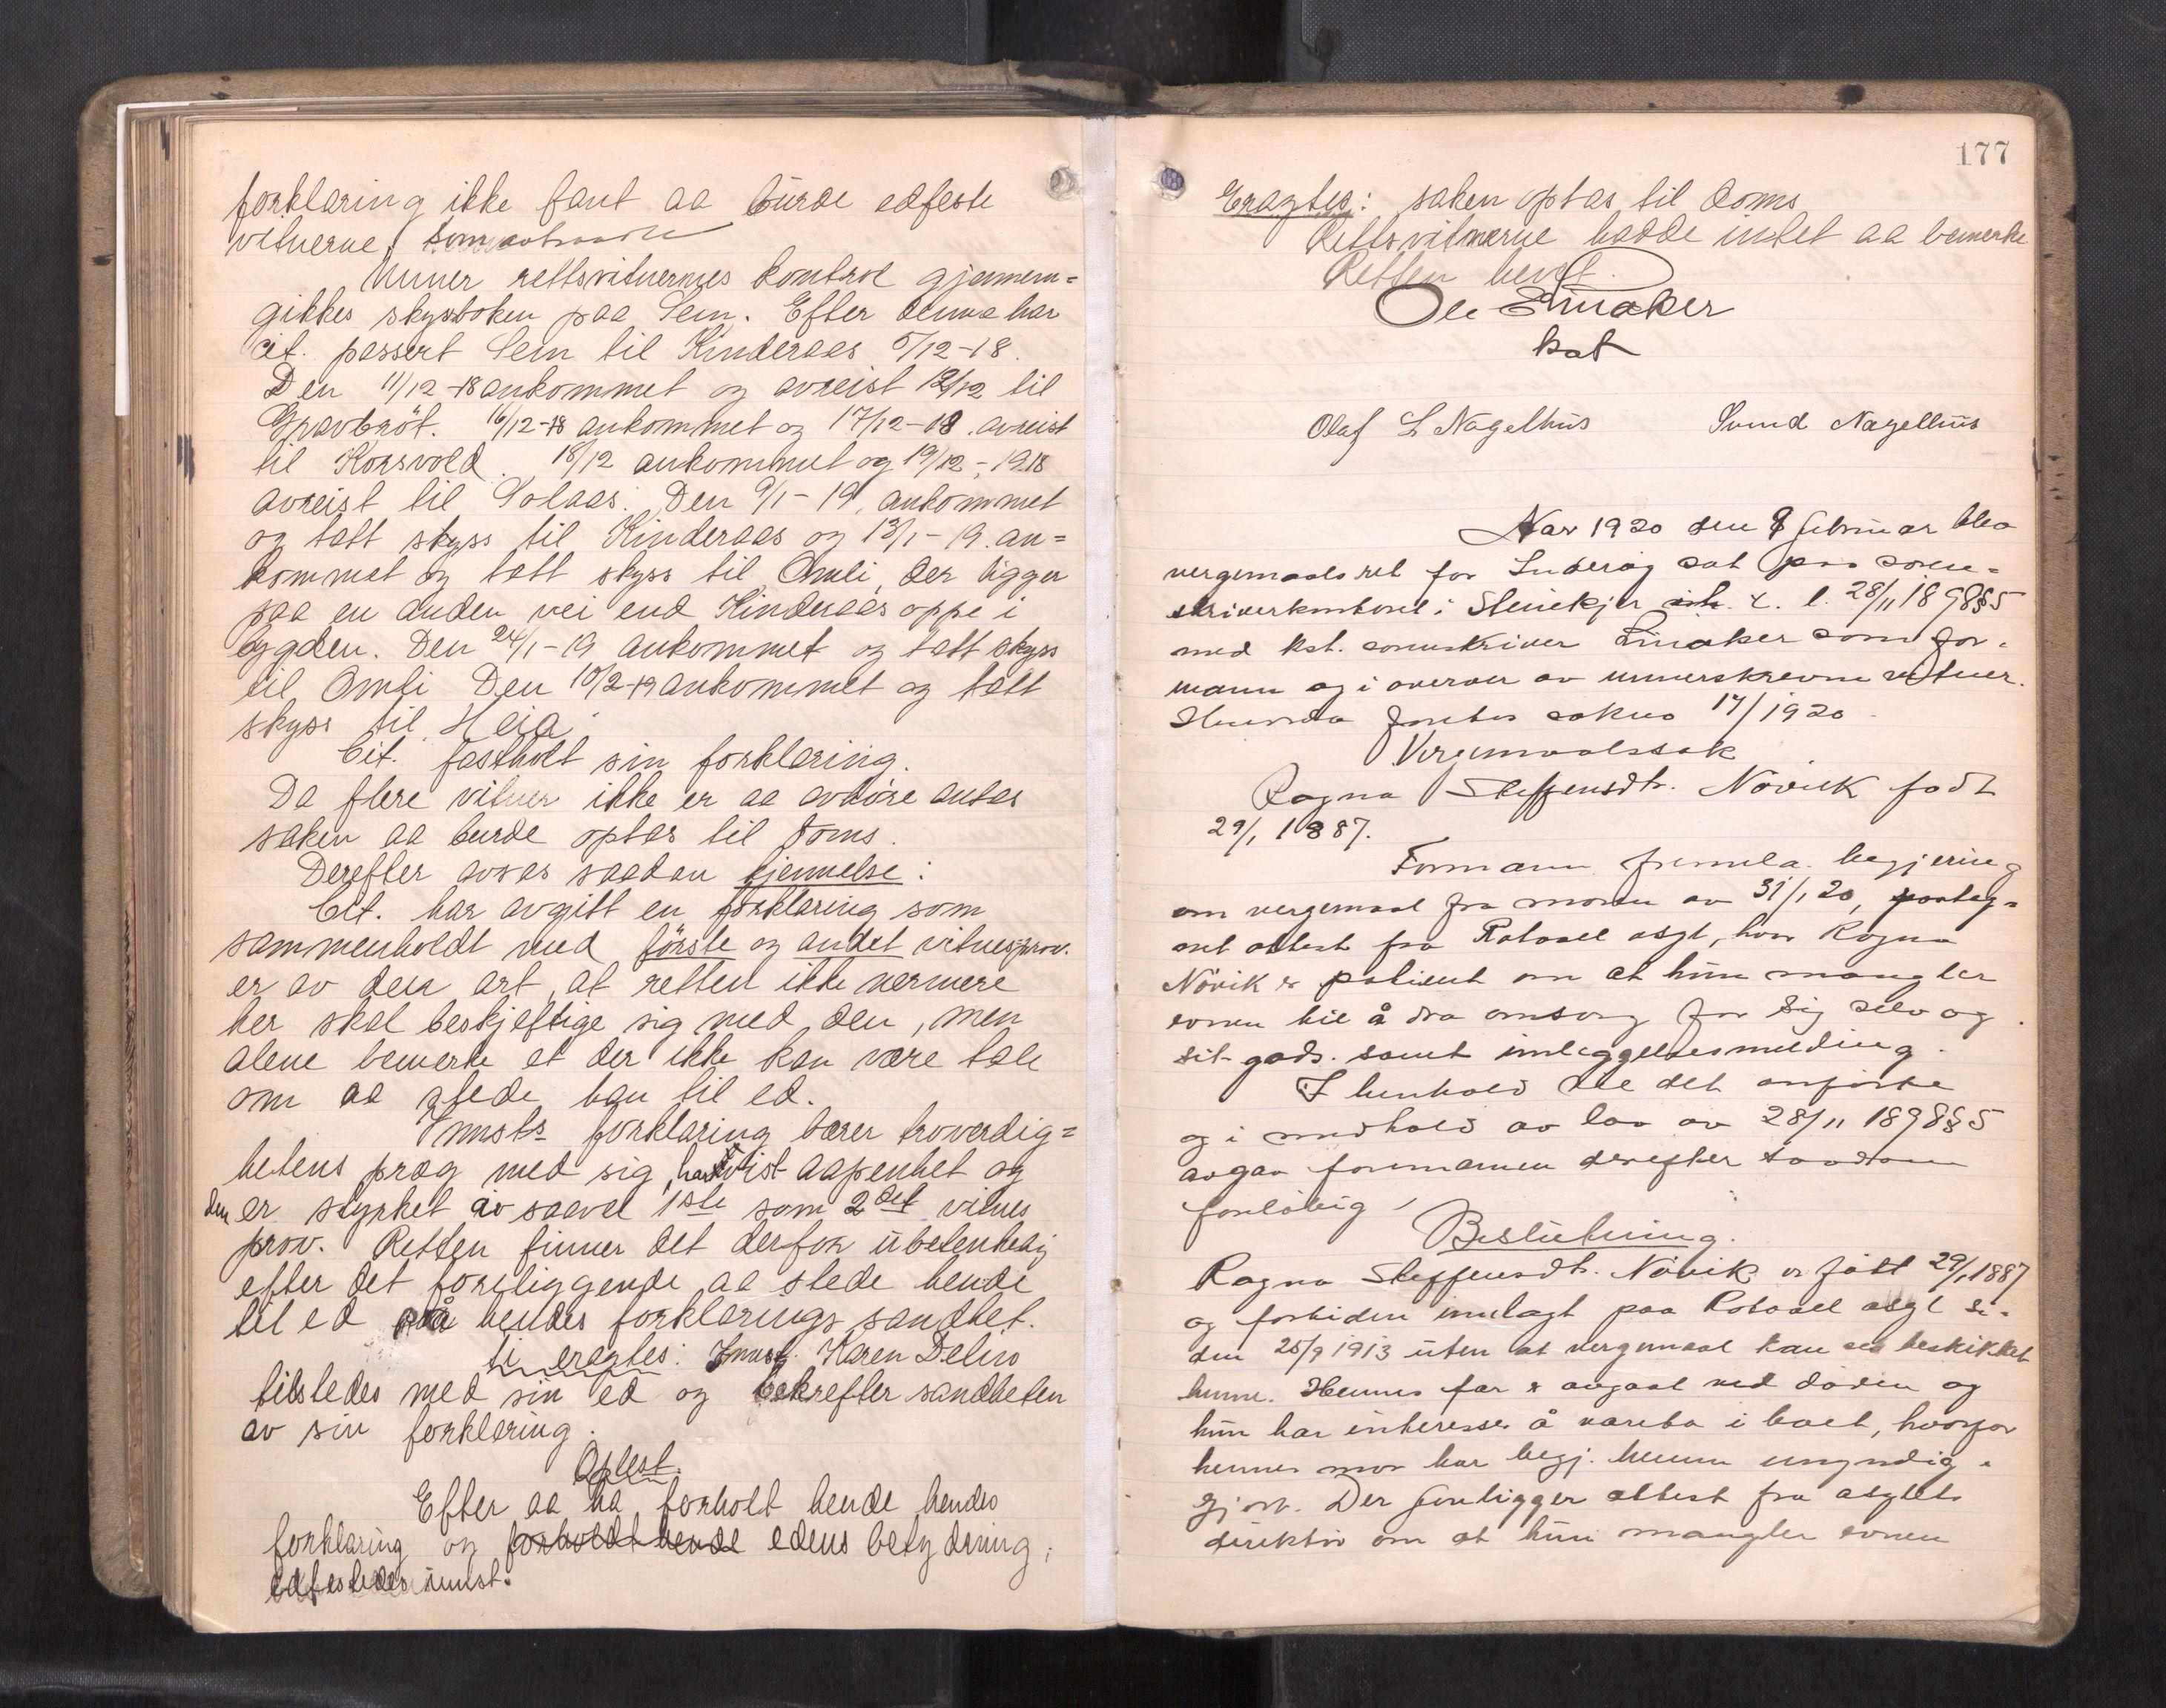 forklaring ikke fant aa burde edfeste
vitnerne, som
Unner rettsvitnernes kontrol gjennem=
gikkes skyssboken paa Sem. Efter denne har
cit. passert Sem til Kinderaas 5/12-18.
Den 11/12-18 ankommet og avreist 12/12 til
Gravbröt. 16/12-18 ankommet og 17/12-18 avreist
til Korsvold. 18/12 ankommet og 19/12-1918
avreist til Solaas. Den 9/1-19 ankommet
og tatt skyss til Kinderaas og 13/1-19. an=
kommet og tatt skyss til Omli, der ligger
paa en anden vei end Kinderaas oppe i
bygden. Den 24/1-19 ankommet og tatt skyss
til Omli Den 10/2-19 ankommet og tatt
skyss til Heia.
Cit. fastholt sin forklaring.
Da flere vitner ikke er aa avhöre antas
saken aa burde optas til doms.
Derefter avsas saadan kjennelse:
Cit. har avgitt en forklaring som
sammenholdt med förste og andet vitnesprov.
er av den art, at retten ikke nærmere
her skal beskjeftige sig med den, men
alene bemerke at der ikke kan være tale
om aa stede han til ed.
Imsts forklaring bærer troverdig=
hetens præg med sig, har vist aapenhet og
den er styrket av saavel 1ste som 2det vitnes
prov. Retten finner det derfor ubetenkelig
efter det foreliggende aa stede hende
til ed på hendes forklarings sandhet.
ti eragtes: Imst. Karen Delin
tilstedes med sin ed og bekrefter sandheten
av sin forklaring.
Oplest.
Efter aa ha forholt hende hendes
forklaring og forholdt hende edens betydning,
edfestedes imst.
177
Eragtes: saken optas til doms
Rettsvitnerne hadde intet aa bemerke
Retten hevet.
Ole Linaker
kst
Olaf L Nagelhus Svend Nagelhus
Aar 1920 den 9 februar blev
vergemaalsret for Inderöy sat paa soren=
skriverkontoret i Steinkjer i h. t. l. 28/11 1898 § 5
med kst. sorenskriver Linaker som for=
mann og i overvær av unnerskrevne vitner.
foretas saknr 17/1920
Vergemaalssak
Ragna Steffensdtr. Növik födt
29/1 1887.
Formann fremla begjering
om vergemaal fra moren av 31/1 20, samt læg=
eat attest fra Rotvoll asyl, hvor Ragna
Növik er patient om at hun mangler
evnen til å dra omsorg for sig selv og
sit gods. samt innleggelsesmelding.
I henhold til det anförte
og i medhold av lov av 28/11 1898 § 5
avgav formannen derefter saadan
forelöbig
Beslutning.
Ragna Steffensdtr. Növik er födt 29/1 1887
og fortiden innlagt paa Rotvoll asyl si=
den 25/9 1913 uten at vergemaal kan sees beskikket
henne. Hennes far er avgaat ved döden og
hun har interesser å vareta i boet, hvorfor
hennes mor har begj. henne umyndig=
gjort. Der foreligger attest fra asylets
direktör om at hun mangler evnen